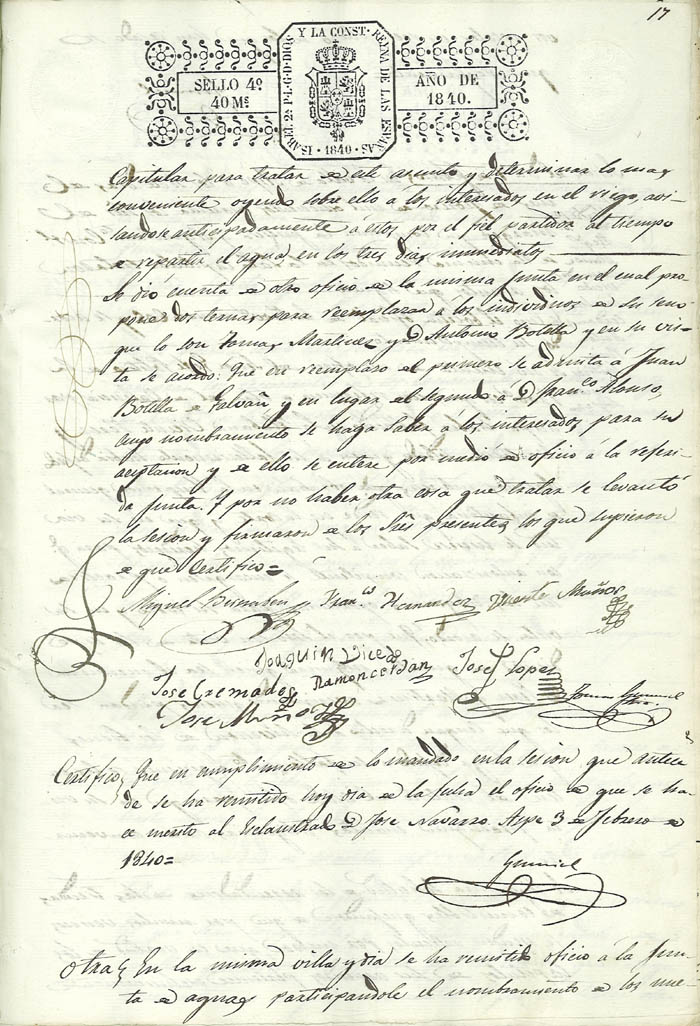 17
SELLO 4º
40 Ms
ISABEL 2ª P.L.G.D.DIOS Y LA CONST. REINA DE LAS ESPAÑAS
1840
AÑO DE
1840.
Capitular para tratar de este asunto y determinar lo mas
conveniente oyendo sobre ello á los interesados en el riego, avi-
sandose anticipadamente á estos por el fiel partidor al tiempo
de repartir el agua, en los tres dias inmediatos
Se dió cuenta de otro oficio de la misma junta en el cual pro-
pone dos ternas para reemplazar á los individuos de su seno
que lo son Tomas Martinez y D. Antonio Botella y en su vis-
ta se acordo: Que en reemplazo del primero se admita a Juan
Botella de Galvañ y en lugar del segundo á D. Franco. Alonso,
cuyo nombramiento se haga saber á los interesados para su
aceptacion y de ello se entere por medio de oficio á la referi-
da junta. Y por no haber otra cosa que tratar se levantó
la sesion y firmaron de los Sres presentes, los que supieron
de que certifico=
Miguel Bernabeu Franco. Hernandez Vicente Muños
Joaquin Vicedo
Jose Cremades Ramon Cerdan Josef Lopez
Jose Muños
Certifico; Que en cumplimiento de lo mandado en la sesion que antece
de se ha remitido hoy dia de la fecha el oficio de que se ha-
ce merito al Esclaustrado D. Jose Navarro. Aspe 3 de Febrero de
1840=
Otra; En la misma villa y dia se ha remitido oficio á la Jun-
ta de aguas participandole el nombramiento de los nue-